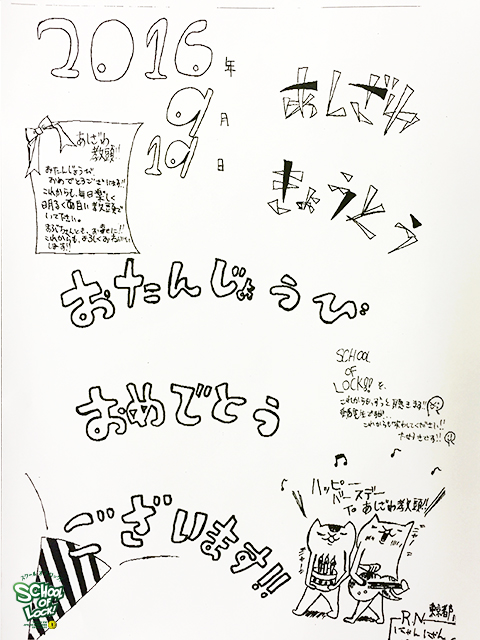 2016年
9月
19日
あしざわ
きょうとう
あしざわ
教頭!!
おたんじょうび
おめでとうございます!!
これからも、毎日楽しく
明るく面白い教頭で
いて下さい。
これからも、よろしくおねがい
します!!
おたんじょうび
おめでとう
ございます!!
SCHOOL
OF
LOCK!! を、
これからもずっと聴きます!!
ハッピー
バースデー
To あしざわ教頭!!
スクールオブロック
SCHOOL
OF
LOCK!
東京都
R.N
にゃんこさん